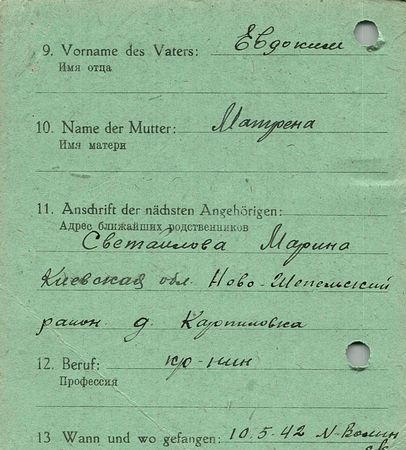 9. Vorname des Vaters: Евдоким
Имя отца
10. Name der Mutter: Матрена
Имя матери
11. Anschrift der nächsten Angehörigen:
Адрес ближайших родственников
Светаилова Марина
Киевская обл. Ново-Шепельский
район д. Карпиловка
12. Beruf: кр-нин
Профессия
13 Wann und wo gefangen: 10.5-42 N-Волин